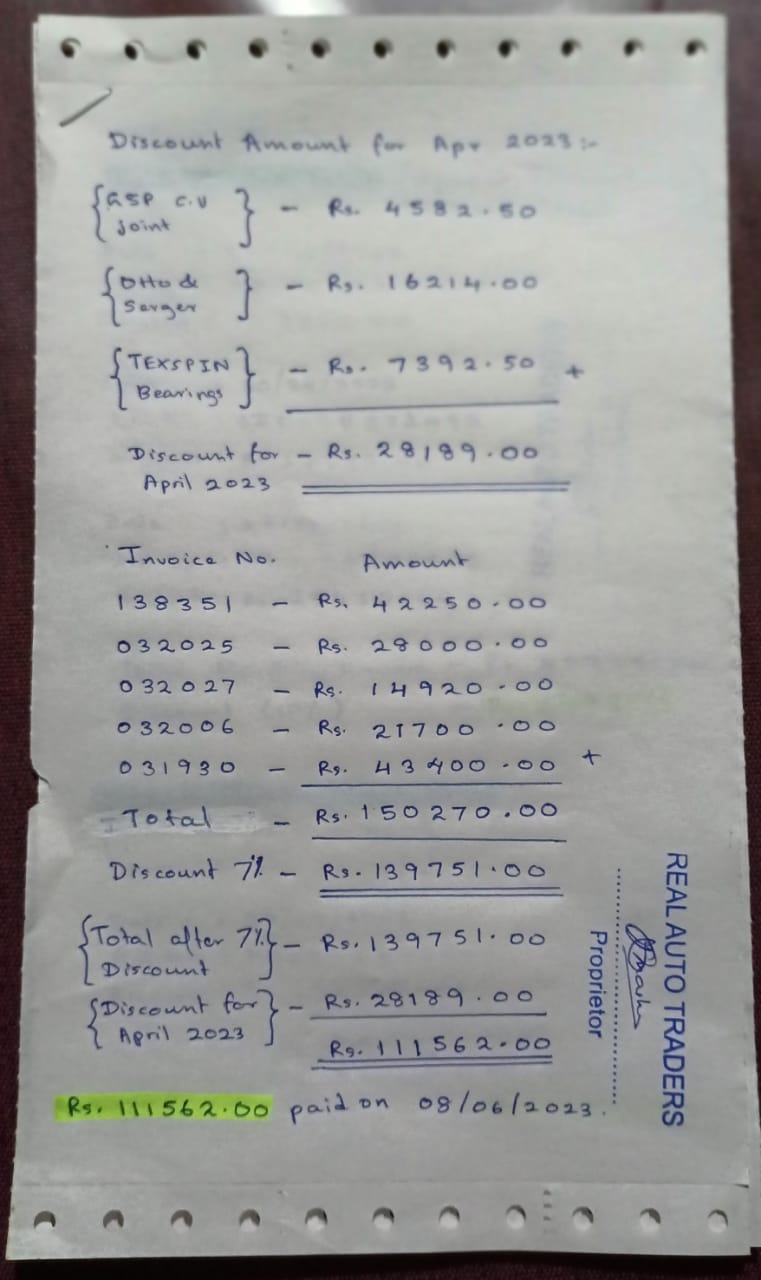 Discount Amount for Apr 2023:-
GSP C.V - Rs. 4582.50
Joint
Otto & - Rs. 16214.00
Sarger
TEXSPIN - Rs. 7392.50 +
Bearings
Discount for - Rs. 28189.00
April 2023
Invoice No. Amount
138351 - Rs. 42250.00
032025 - Rs. 28000.00
032027 - Rs. 14920.00
032006 - Rs. 21700.00
031930 - Rs. 43400.00 +
Total - Rs. 150270.00
Discount 7% - Rs. 139751.00
Total after 7% - Rs. 139751.00
Discount
Discount for - Rs. 28189.00
April 2023
Rs. 111562.00
Rs. 111562.00 paid on 08/06/2023.
REAL AUTO TRADERS
Proprietor